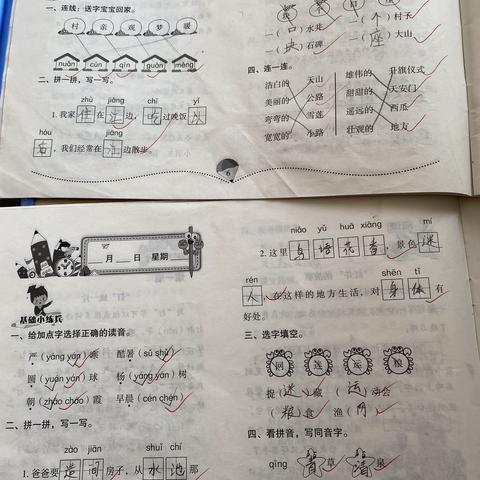 一、连线：送字宝宝回家。
村 亲 观 梦 暖
nuǎn cūn qīn guān mèng
二、拼一拼，写一写。
zhù jiāng chī yǐ
1. 我家 住 在 江 边，吃 过晚饭 以
hòu jiāng
后，我们经常在 江 边散步。
一（个）村子
一（口）水花
一（块）石碑 一（座）大山
四、连一连。
洁白的 天山 雄伟的 升旗仪式
美丽的 公路 甜甜的 天安门
弯弯的 雪莲 遥远的 西瓜
宽宽的 小路 壮观的 地方
6
月 日 星期
基础小练兵
一、给加点字选择正确的读音。
严（yàng yán）寒 酷暑（sǔ shǔ）
圆（yuán yán）球 杨（yáng yán）树
朝（zhāo chāo）霞 早晨（cén chén）
二、拼一拼，写一写。
zào jiān shuǐ chí
1. 爸爸要 造 间 房子，从 水 池 那
niǎo yǔ huā xiāng mí
2. 这里 鸟 语 花 香，景色 迷
rén shēn tǐ
人，在这样的地方生活，对 身 体 有
好处。
三、选字填空。
网 迷 运 粮
捉（迷）藏 （运）动会
（粮）食 渔（网）
四、看拼音，写同音字。
qīng 青 草 清 泉